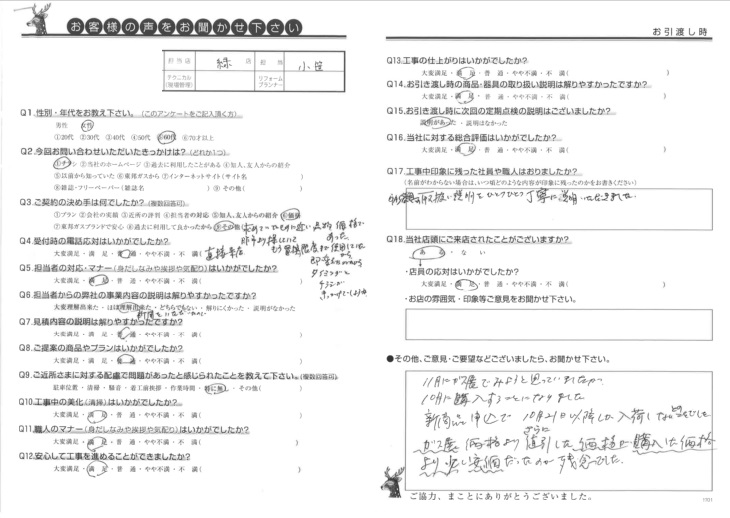 お客様の声をお聞かせ下さい
担当店 緑 店 担当 小笹
テクニカル（現場管理） リフォームプランナー
Q1.性別・年代をお教え下さい。（このアンケートをご記入頂く方）
男性 女性
①20代 ②30代 ③40代 ④50代 ⑤60代 ⑥70才以上
Q2.今回お問い合わせいただいたきっかけは？（どれか1つ）
①チラシ ②当社のホームページ ③過去に利用したことがある ④知人、友人からの紹介
⑤以前から知っていた ⑥東邦ガスから ⑦インターネットサイト（サイト名 ）
⑧雑誌・フリーペーパー（雑誌名 ） ⑨その他（ ）
Q3.ご契約の決め手は何でしたか？（複数回答可）
①プラン ②会社の実績 ③近所の評判 ④担当者の対応 ⑤知人、友人からの紹介 ⑥価格
⑦東邦ガスブランドで安心 ⑧過去に利用して良かったから ⑨その他（
Q4.受付時の電話応対はいかがでしたか？
大変満足・満足・普通・やや不満・不満（ 直接来店
Q5.担当者の対応・マナー（身だしなみや挨拶や気配り）はいかがでしたか？
大変満足・満足・普通・やや不満・不満（
Q6.担当者からの弊社の事業内容の説明は解りやすかったですか？
大変理解出来た・ほぼ理解出来た・どちらでもない・解りにくかった・説明がなかった
Q7.見積内容の説明は解りやすかったですか？
大変満足・満足・普通・やや不満・不満（ ）
Q8.ご提案の商品やプランはいかがでしたか？
大変満足・満足・普通・やや不満・不満（ ）
Q9.ご近所さまに対する配慮で問題があったと感じられたことを教えて下さい。（複数回答可）
駐車位置・清掃・騒音・着工前挨拶・作業時間・特に無し・その他（ ）
Q10.工事中の美化（清掃）はいかがでしたか？
大変満足・満足・普通・やや不満・不満（ ）
Q11.職人のマナー（身だしなみや挨拶や気配り）はいかがでしたか？
大変満足・満足・普通・やや不満・不満（ ）
Q12.安心して工事を進めることができましたか？
大変満足・満足・普通・やや不満・不満（ ）
お引渡し時
Q13.工事の仕上がりはいかがでしたか？
大変満足・満足・普通・やや不満・不満（ ）
Q14.お引き渡し時の商品・器具の取り扱い説明は解りやすかったですか？
大変満足・満足・普通・やや不満・不満（ ）
Q15.お引き渡し時に次回の定期点検の説明はございましたか？
説明があった・説明はなかった
Q16.当社に対する総合評価はいかがでしたか？
大変満足・満足・普通・やや不満・不満（ ）
Q17.工事中印象に残った社員や職人はおりましたか？
（名前がわからない場合は、いつ頃どのような内容が印象に残ったのかをお書きください）
取扱い説明をひとつひとつ丁寧に説明いただきました。
Q18.当社店頭にご来店されたことがございますか？
ある・ない
・店員の応対はいかがでしたか？
大変満足・満足・普通・やや不満・不満（ ）
・お店の雰囲気・印象等ご意見をお聞かせ下さい。
●その他、ご意見・ご要望などございましたら、お聞かせ下さい。
11月にガス展でみようと思っていましたが
10月に購入することになりました
新商品 申込で 10月21日以降しか入荷しない
ガス展 価格より さらに 値引した価格で購入した価格
より 少し安価だったのが 残念でした。
ご協力、まことにありがとうございました。